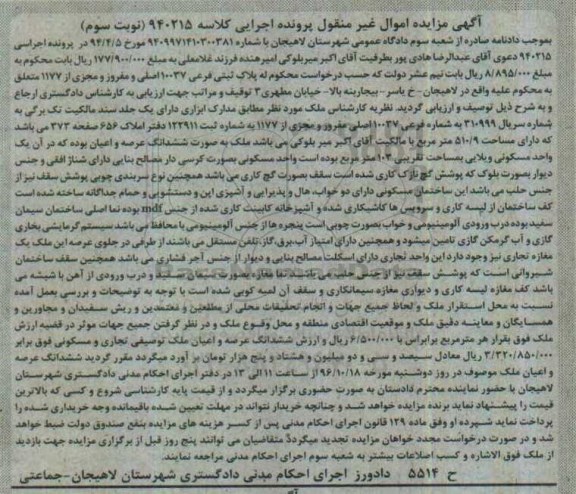 آگهی مزایده اموال غیر منقول پرونده اجرایی کلاسه ۹۴۰۲۱۵ (نوبت سوم)
بموجب دادنامه صادره از شعبه سوم دادگاه عمومی شهرستان لاهیجان با شماره ۹۴۰۹۹۷۱۴۱۰۳۰۰۳۸۱ مورخ ۹۴/۴/۵ در پرونده اجراسی
۹۴۰۲۱۵ دعوی آقای عبدالرضا هادی پور بطرفیت آقای اکبر میربلوکی امیرهنده فرزند غلامعلی به مبلغ ۱۷۷/۹۰۰/۰۰۰ ریال بابت محکوم به
مبلغ ۸/۸۹۵/۰۰۰ ریال بابت نیم عشر دولت که حسب درخواست محکوم له پلاک ثبتی فرعی ۱۰۰۳۷ اصلی و مفروز و مجزی از ۱۱۷۷ متعلق
به محکوم علیه واقع در لاهیجان- خ یاسر- بیجاربنه بالا- خیابان مطهری۳ توقیف و مراتب جهت ارزیابی به کارشناس دادگستری ارجاع
و به شرح ذیل توصیف و ارزیابی گردید. نظریه کارشناس ملک مورد نظر مطابق مدارک ابرازی دارای یک جلد سند مالکیت تک برگی به
شماره سریال ۳۱۰۹۹۹ به شماره فرعی ۱۰۰۳۷ اصلی مفروز و مجزی از ۱۱۷۷ به شماره ثبت ۱۲۲۹۱۱ دفتر املاک ۶۵۶ صفحه ۳۷۳ می باشد
که دارای مساحت ۵۱۰/۹ متر مربع با مالکیت آقای اکبر میر بلوکی می باشد ملک به صورت ششدانگ عرصه و اعیان بوده که در آن یک
واحد مسکونی ویلایی بمساحت تقریبی ۱۰۳ متر مربع بوده است واحد مسکونی بصورت کرسی دار مصالح بنایی دارای شناژ افقی و جنس
دیوار بصورت بلوک که پوشش گچ نازک کاری شده است سقف بصورت گچ کاری می باشد همچنین نوع سربندی چوبی پوشش سقف نیز از
جنس حلب می باشد این ساختمان مسکونی دارای دو خواب، هال و پذیرایی و آشپزی اپن و دستشویی و حمام جداگانه ساخته شده است
کف ساختمان از لیسه کاری و سرویس ها کاشیکاری شده و آشپزخانه کابینت کاری شده از جنس mdf بوده نما اصلی ساختمان سیمان
سفید بوده درب ورودی آلومینیومی و خواب بصورت چوبی است پنجره ها از جنس آلومینیومی با محافظ می باشد سیستم گرمایشی بخاری
گازی و آب گرمکن گازی تامین میشود و همچنین دارای امتیاز آب،برق،گاز،تلفن مستقل می باشند از طرفی در جلوی عرصه این ملک یک
مغازه تجاری نیز وجود دارد این واحد تجاری دارای اسکلت مصالح بنایی و دیوار از جنس آجر فشاری می باشد همچنین سقف ساختمان
شیروانی است که پوشش سقف نیز از جنس حلب می باشد نما مغازه بصورت سیمان سفید و درب ورودی از آهن با شیشه می
باشد کف مغازه لیسه کاری و دیواری مغازه سیمانکاری و سقف آن لمبه کوبی شده است با توجه به توضیحات و بررسی بعمل آمده
نسبت به محل استقرار ملک و لحاظ جمیع جهات و انجام تحقیقات محلی از مطلعین و معتمدین و ریش سفیدان و مجاورین و
همسایگان و معاینه دقیق ملک و موقعیت اقتصادی منطقه و محل وقوع ملک و در نظر گرفتن جمیع جهات موثر در قضیه ارزش
ملک فوق بقرار هر مترمربع برابراس با ۶/۵۰۰/۰۰۰ ریال و ارزش ششدانگ عرصه و اعیان ملک توصیفی تجاری و مسکونی فوق برابر
۳/۳۲۰/۸۵۰/۰۰۰ ریال معادل سیصد و سی و دو میلیون و هشتاد و پنج هزار تومان بر آورد میگردد مقرر گردید ششدانگ عرصه
و اعیان ملک موصوف در روز دوشنبه مورخه ۹۶/۱۰/۱۸ از ساعت ۱۱ الی ۱۳ در دفتر اجرای احکام مدنی دادگستری شهرستان
لاهیجان با حضور نماینده محترم دادستان به صورت حضوری برگزار میگردد و از قیمت پایه کارشناسی شروع و کسی که بالاترین
قیمت را پیشنهاد نماید برنده مزایده خواهد شد و چنانچه خریدار نتواند در مهلت تعیین شده باقیمانده وجه خریداری شده را
پرداخت نماید شپرده او وفق ماده ۱۲۹ قانون اجرای احکام مدنی پس از کسر هزینه های مزایده بنفع صندوق دولت ضبط خواهد
شد و در صورت درخواست مجدد خواهان مزایده تجدید میگردد متقاضیان می توانند پنج روز قبل از برگزاری مزایده جهت بازدید
از ملک فوق الاشاره و کسب اصلاعات بیشتر به شعبه سوم اجرای احکام مدنی مراجعه نمایند.
ح ۵۵۱۴ دادورز اجرای احکام مدنی دادگستری شهرستان لاهیجان-جماعتی